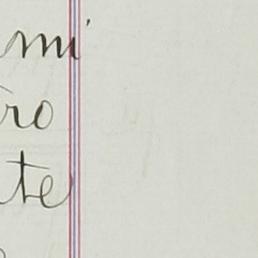 mi
ro
te